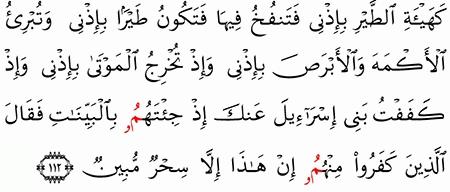 كَهَيْـَٔةِ ٱلطَّيْرِ بِإِذْنِى فَتَنفُخُ فِيهَا فَتَكُونُ طَيْرًۢا بِإِذْنِى وَتُبْرِئُ
ٱلْأَكْمَهَ وَٱلْأَبْرَصَ بِإِذْنِى وَإِذْ تُخْرِجُ ٱلْمَوْتَىٰ بِإِذْنِى وَإِذْ
كَفَفْتُ بَنِى إِسْرَٰٓءِيلَ عَنكَ إِذْ جِئْتَهُمُۥ بِٱلْبَيِّنَٰتِ فَقَالَ
ٱلَّذِينَ كَفَرُوا۟ مِنْهُمُۥ إِنْ هَٰذَا إِلَّا سِحْرٌ مُّبِينٌ ﴿١١٢﴾